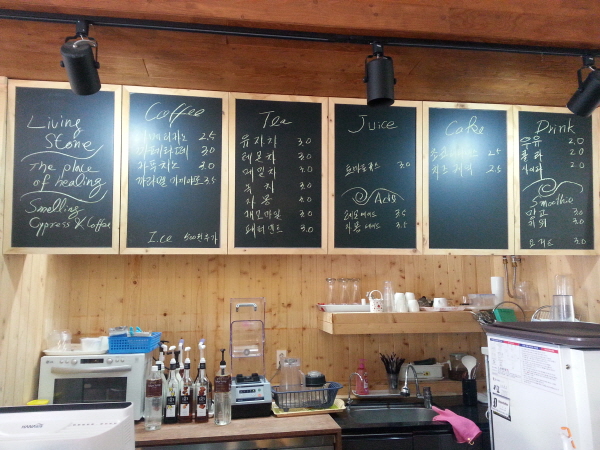 Living
Stone
The place
of healing
Smelling
Cypress & Coffee
Coffee
아메리카노 2.5
카페라떼 3.0
카푸치노 3.0
카라멜 마끼아또 3.5
Ice 500원 추가
Tea
유자차 3.0
레몬차 3.0
매실차 3.0
녹차 3.0
자몽 3.0
캐모마일 3.0
페퍼민트 3.0
Juice
토마토쥬스 3.0
Ade
레몬에이드 3.5
자몽에이드 3.5
Cake
2.5
치즈케익 2.5
Drink
우유 2.0
콜라 2.0
사이다 2.0
Smoothie
망고 3.0
키위 3.0
요거트 3.0